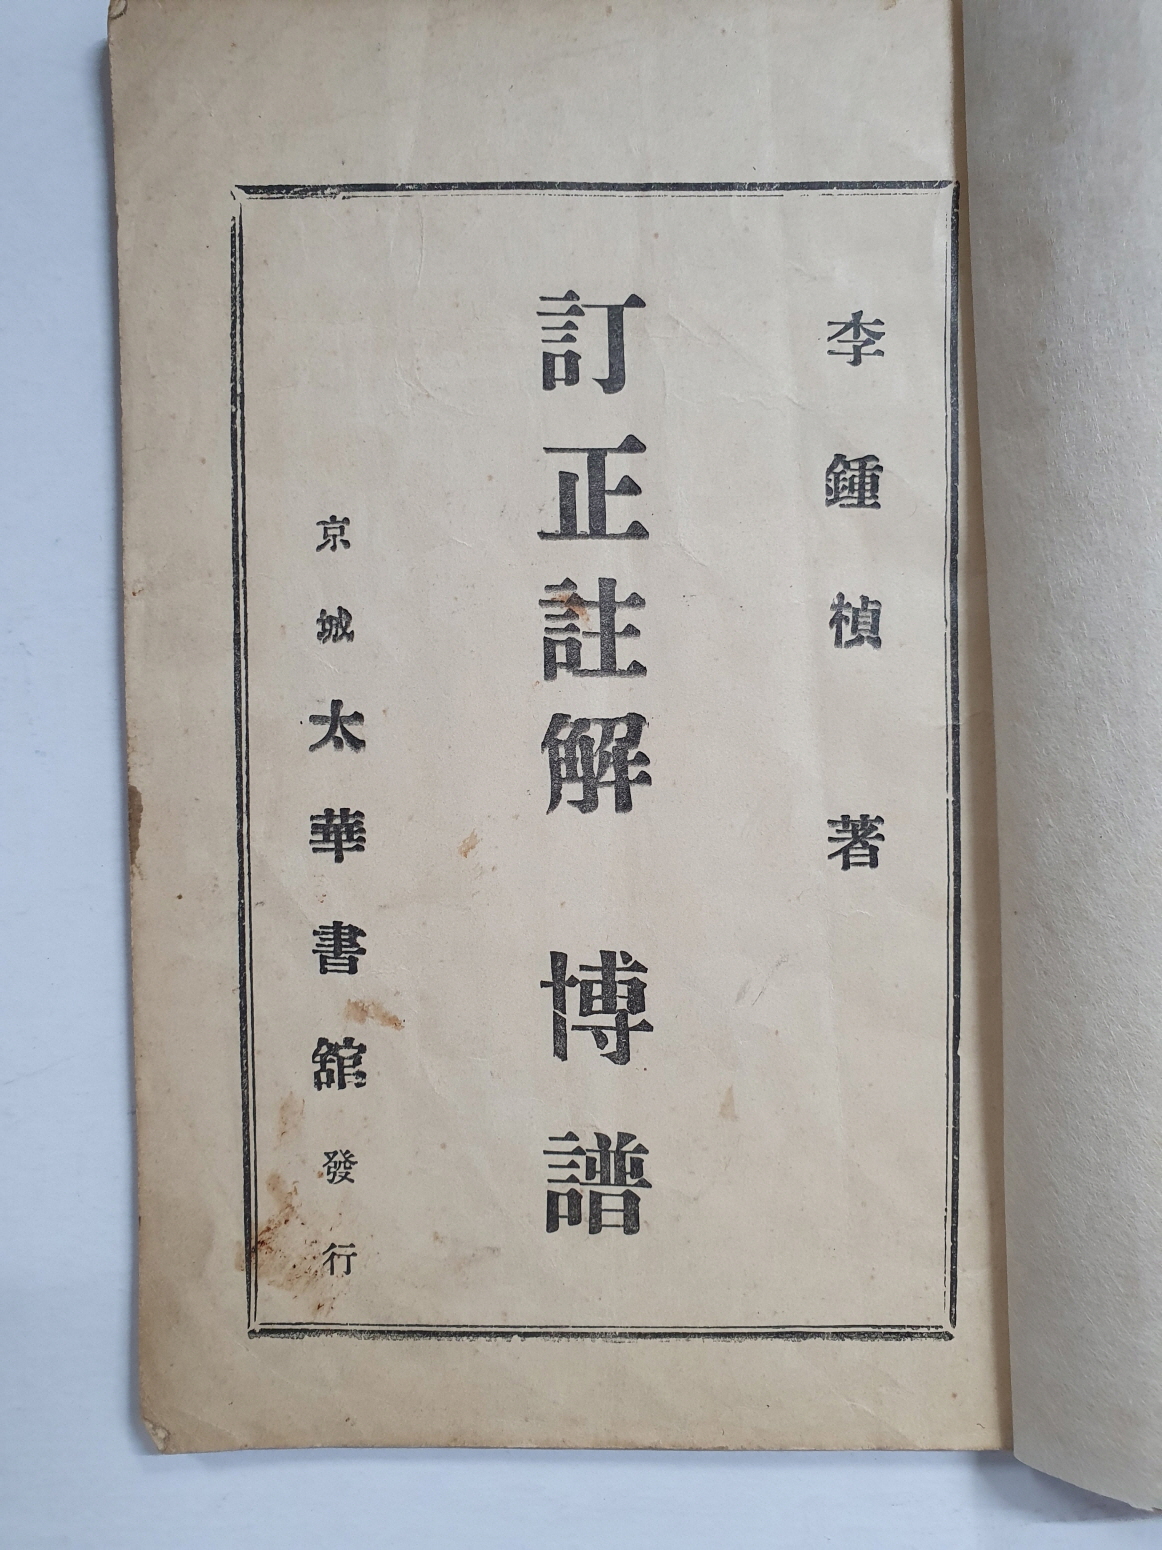 李鍾楨 著
訂正註解 博譜
京城 太華書舘 發行